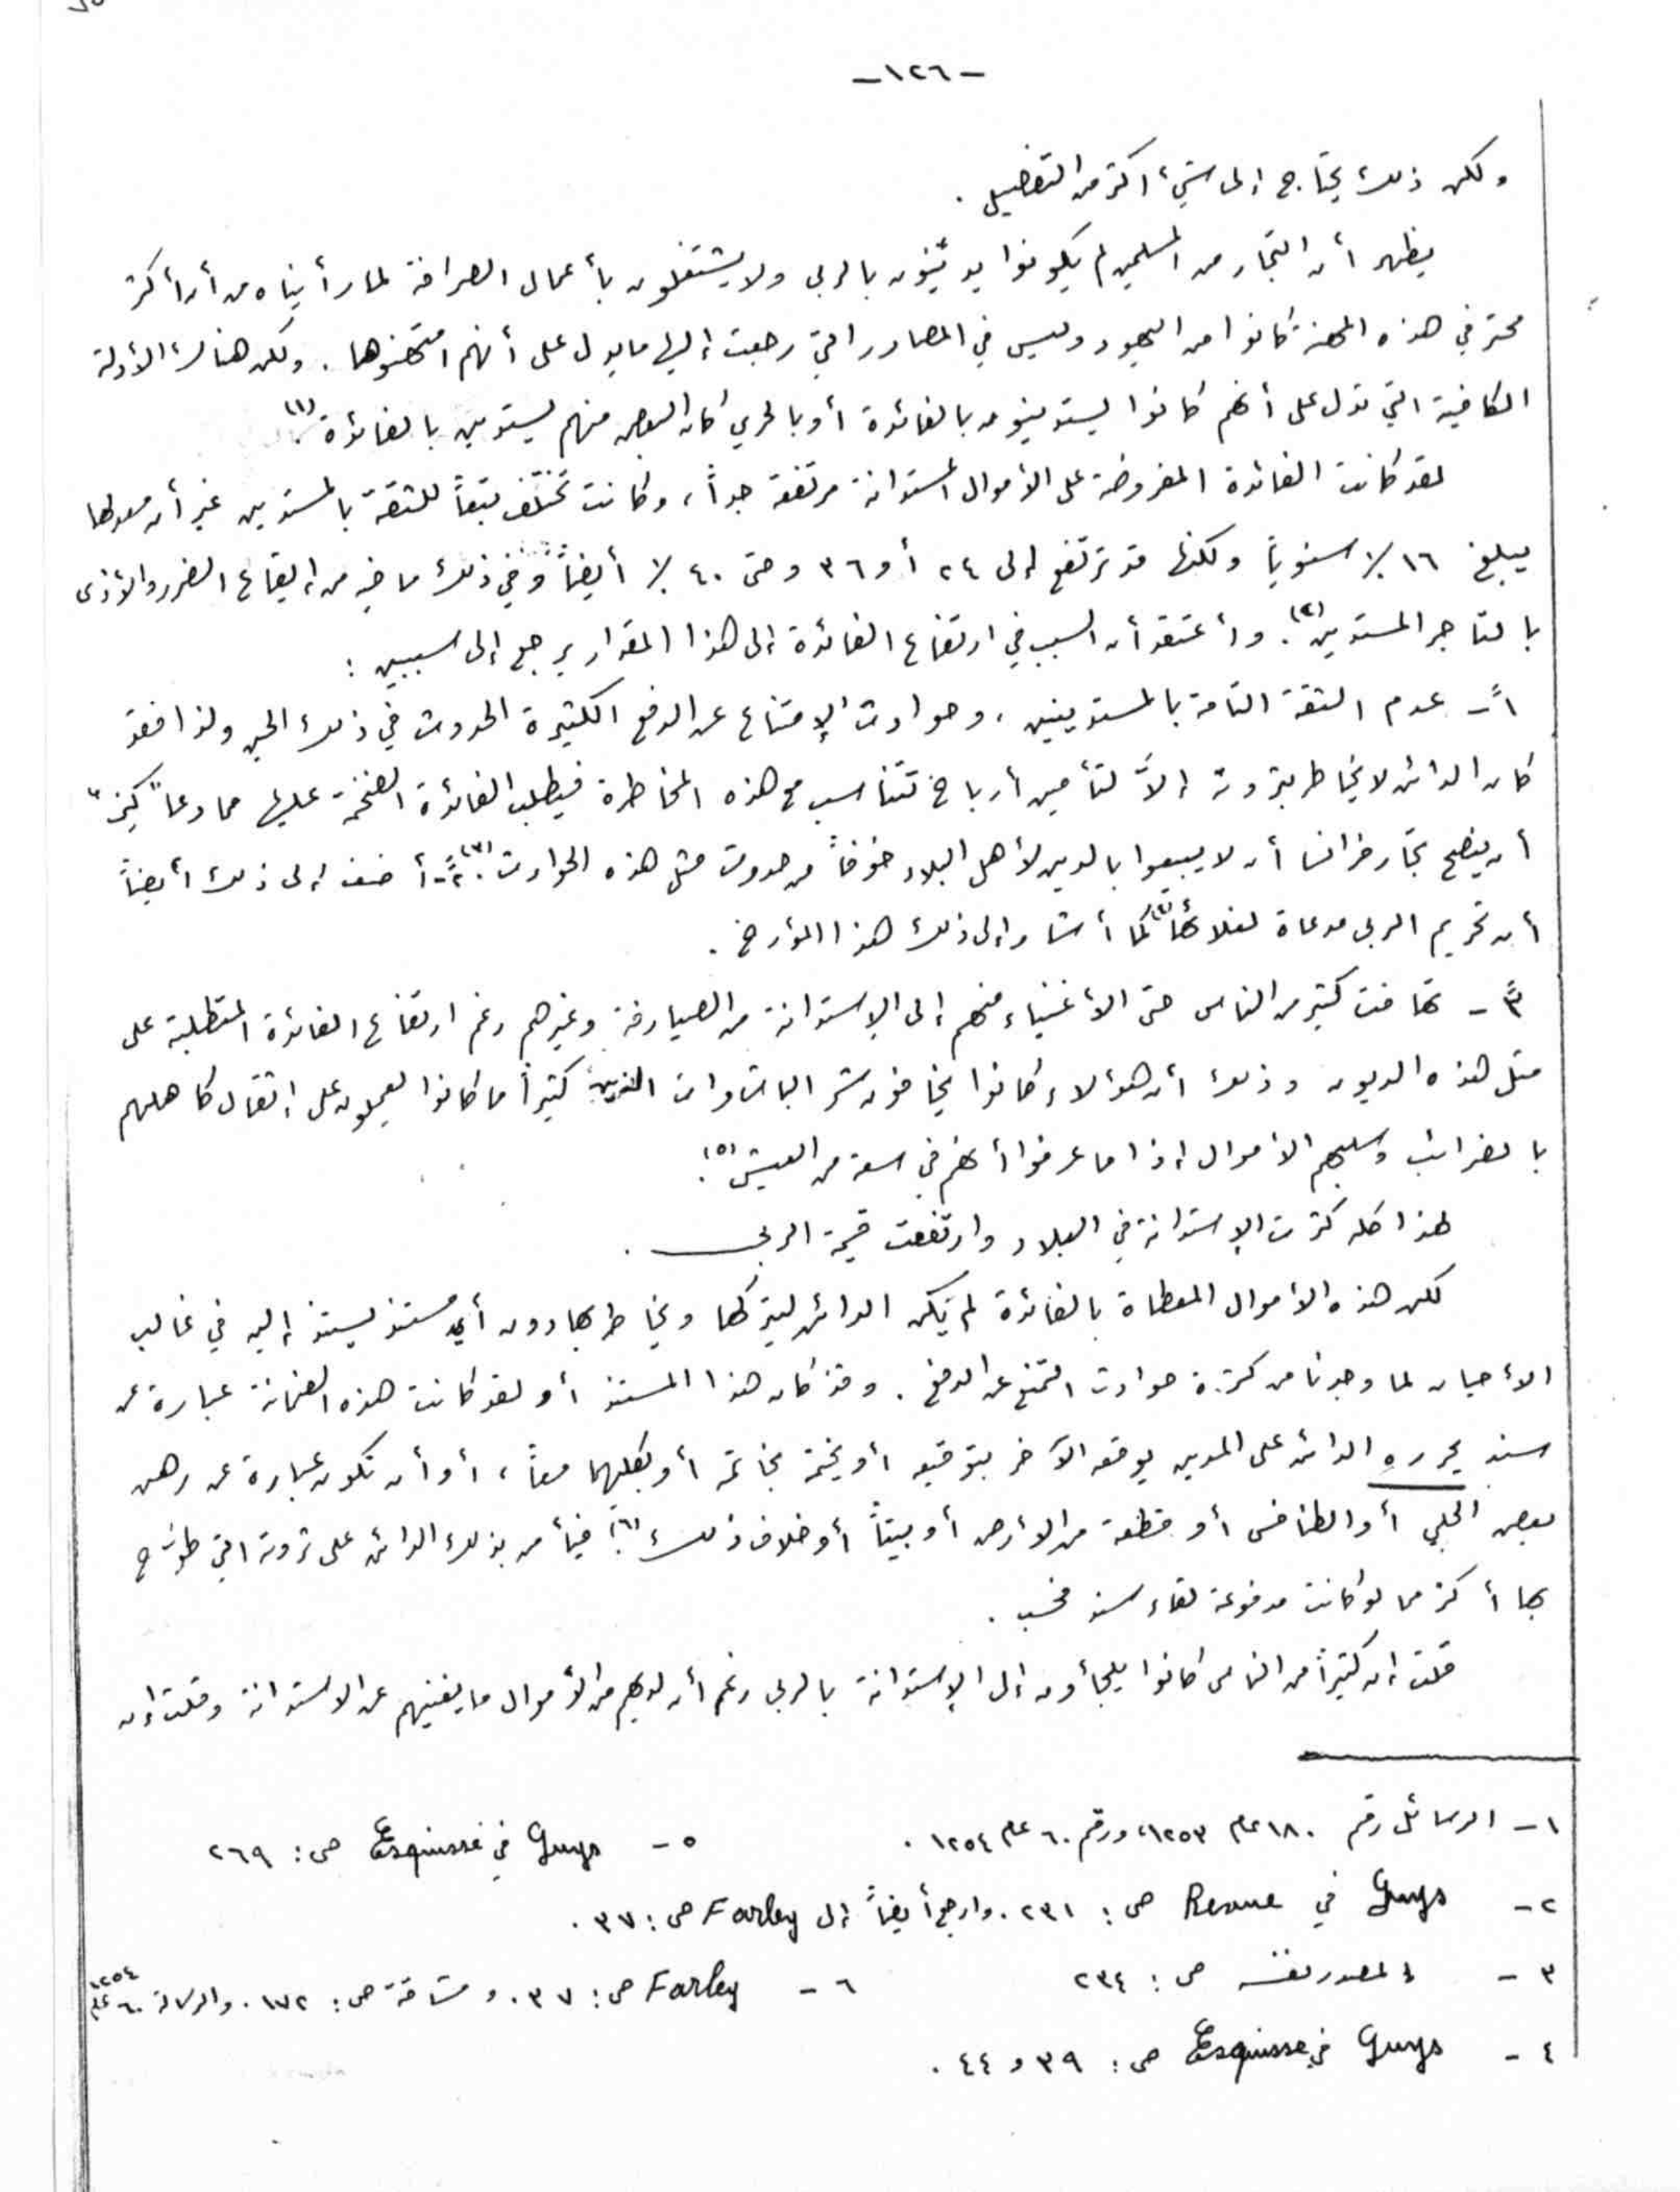 -١٢٦-
ولكن ذلك يحتاج إلى شيء أكثر من التفصيل .
يظهر أن التجار من المسلمين لم يكونوا يدينون بالربى ولا يشتغلون بأعمال الصرافة لما رأيناه من أن أكثر
محترفي هذه المهنة كانوا من اليهود وليس في المصادر التي رجعت إليها ما يدل على أنهم امتهنوها . ولكن هناك الأدلة
الكافية التي تدل على أنهم كانوا يستدينون بالفائدة أو بالحري كان البعض منهم يستدين بالفائدة (١).
لقد كانت الفائدة المفروضة على الأموال المستدانة مرتفعة جداً، وكانت تختلف تبعاً للثقة بالمستدين غير أن معدلها
يبلغ ١٦ ٪ سنوياً ولكنها قد ترتفع إلى ٢٤ أو ٣٦ وحتى ٤٠ ٪ أيضاً وفي ذلك ما فيه من إيقاع الضرر والأذى
بالتاجر المستدين (٢). وأعتقد أن السبب في ارتفاع الفائدة إلى هذا المقدار يرجع إلى سببين :
١ً- عدم الثقة التامة بالمستدينين ، وحوادث الإمتناع عن الدفع الكثيرة الحدوث في ذلك الحين ولذا فقد
كان الدائن لا يخاطر بثروته إلاَّ لتأمين أرباح تتناسب مع هذه المخاطرة فيطلب الفائدة الضخمة عليها مما دعا "كيز"
أن ينصح تجار فرانسا أن لا يبيعوا بالدين لأهل البلاد خوفاً من حدوث مثل هذه الحوادث (٣). ٢ً- أضف إلى ذلك أيضاً
أن تحريم الربى مدعاة لغلائها (٤) كما أشار إلى ذلك هذا المؤرخ .
٣ً - تهافت كثير من الناس حتى الأغنياء منهم إلى الإستدانة من الصيارفة وغيرهم رغم ارتفاع الفائدة المتطلبة على
مثل هذه الديون وذلك أن هؤلاء كانوا يخافون شر الباشوات الذين كثيراً ما كانوا يعملون على إثقال كاهلهم
بالضرائب وسلبهم الأموال إذا ما عرفوا أنهم في سعة من العيش (٥).
لهذا كله كثرت الإستدانة في البلاد وارتفعت قيمة الربى .
لكن هذه الأموال المعطاة بالفائدة لم يكن الدائن ليتركها ويخاطر بها دون أي مستند يستند إليه في غالب
الأحيان لما وجدنا من كثرة حوادث التمنع عن الدفع . وقد كان هذا المستند أو لقد كانت هذه الضمانة عبارة عن
سند يحرره الدائن على المدين يوقعه الآخر بتوقيعه أو يختمه بخاتمه أو بكليهما معاً، أو أن تكون عبارة عن رهن
بعض الحلي أو الطنافس أو قطعة من الأرض أو بيتاً أو خلاف ذلك (٦). فيأمن بذلك الدائن على ثروته التي طوّح
بها أكثر مما لو كانت مدفوعة لقاء سند فحسب .
قلت إن كثيراً من الناس كانوا يلجأون إلى الإستدانة بالربى رغم أن لديهم من الأموال ما يغنيهم عن الاستدانة وقلت إن
١- الرسائل رقم ١٨٠ عام ١٢٥٣، ورقم ٦٠ عام ١٢٥٤ .
٢- Guys في Revue ص : ٢٣١. وارجع أيضاً إلى Farley ص : ٣٧ .
٣- المصدر نفسه ص : ٢٣٤
٤- Guys في Esquisse ص : ٣٩ و ٤٤ .
٥- Guys في Esquisse ص : ٢٦٩
٦- Farley ص : ٣٧ . و مشاقة ص : ١٧٢ . والرسالة ٦٠ عام ١٢٥٤